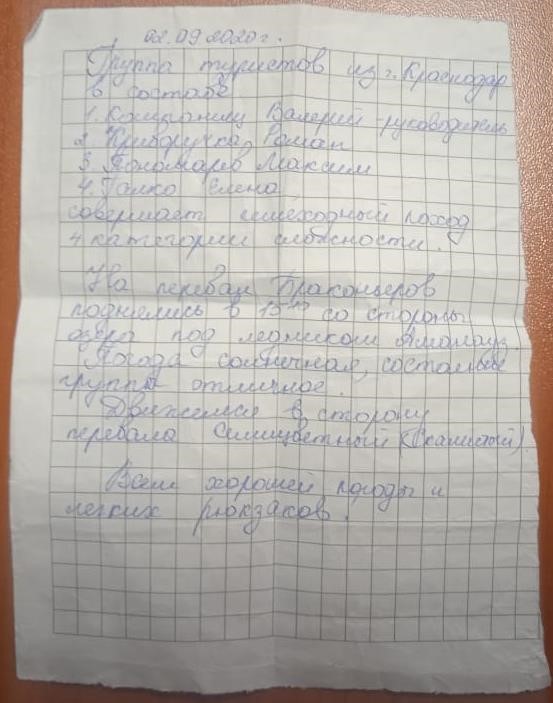 02.09.2020г.
Группа туристов из г. Краснодар
в составе
1. Валерий - руководитель
2. Криворучко Роман
3. Пономарев Максим
4. Галко Елена
совершает пешеходный поход
4 категории сложности.
На перевал Браконьеров
поднялись в 15 со стороны
озера под ледником Аманауз.
Погода солнечная, состояние
группы отличное.
Движемся в сторону
перевала Семицветный (Скалистый)
Всем хорошей погоды и
легких рюкзаков.